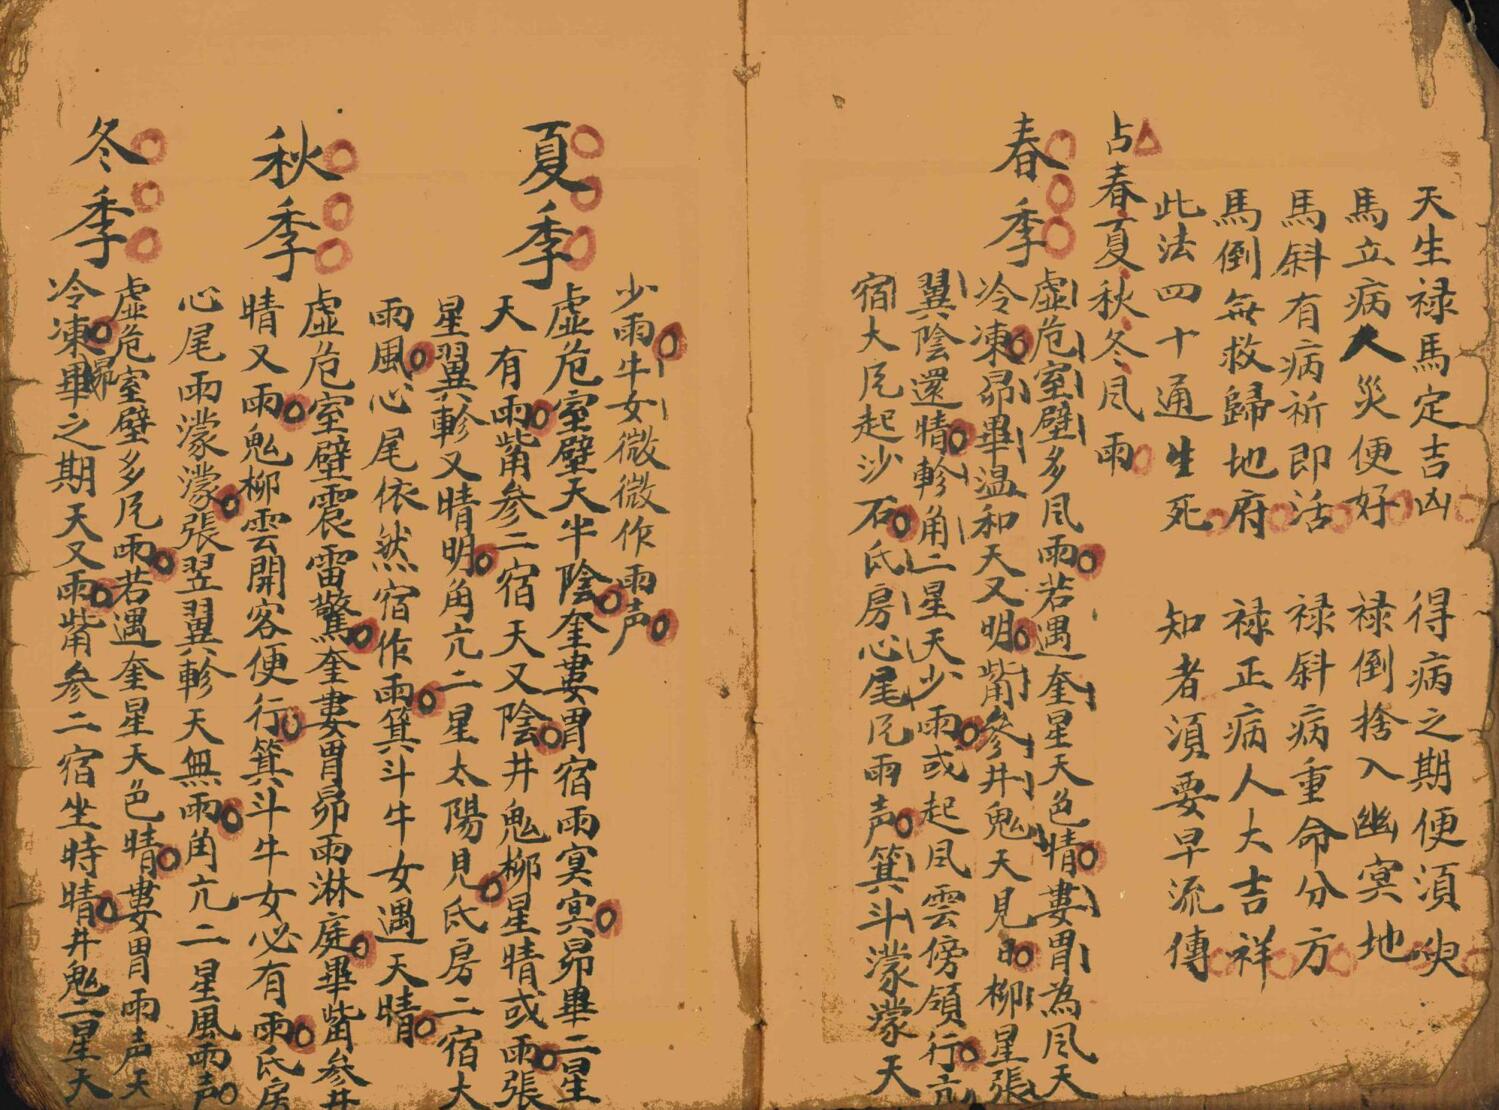 天生禄馬定吉凶　得病之期便須臾
馬立病人災便好　禄倒捨入幽冥地
馬斜有病祈即活　禄斜病重命分方
馬倒無救歸地府　禄正病人大吉祥
此法四十通生死　知者湏要早流傳
占春夏秋冬凬雨
春季
虛危室壁多凬雨若遇奎星天色晴婁胃為凬天
冷凍昴畢温和天又明觜參井鬼天見日柳星張
翼陰還晴軫角二星天少雨或起凬雲傍領行亢
宿大凬起沙石氐房心尾凬雨声箕斗濛濛天
少雨牛女微微作雨声
夏季
虛危室壁天半陰奎婁胃宿雨冥冥昴畢二星
天有雨觜參二宿天又陰井鬼柳星晴或雨張
星翼軫又晴明角亢二星太陽見氐房二宿大
雨風心尾依然宿作雨箕斗牛女遇天晴
秋季
虛危室壁震雷驚奎婁胃昴雨淋庭畢觜参井
晴又雨鬼柳雲開客便行箕斗牛女必有雨氐房
心尾雨濛濛張翌翼軫天無雨角亢二星風雨声
冬季
虛危室壁多凬雨若遇奎星天色晴婁胃雨声天
冷凍昴畢之期天又雨觜參二宿坐時晴井鬼二星天